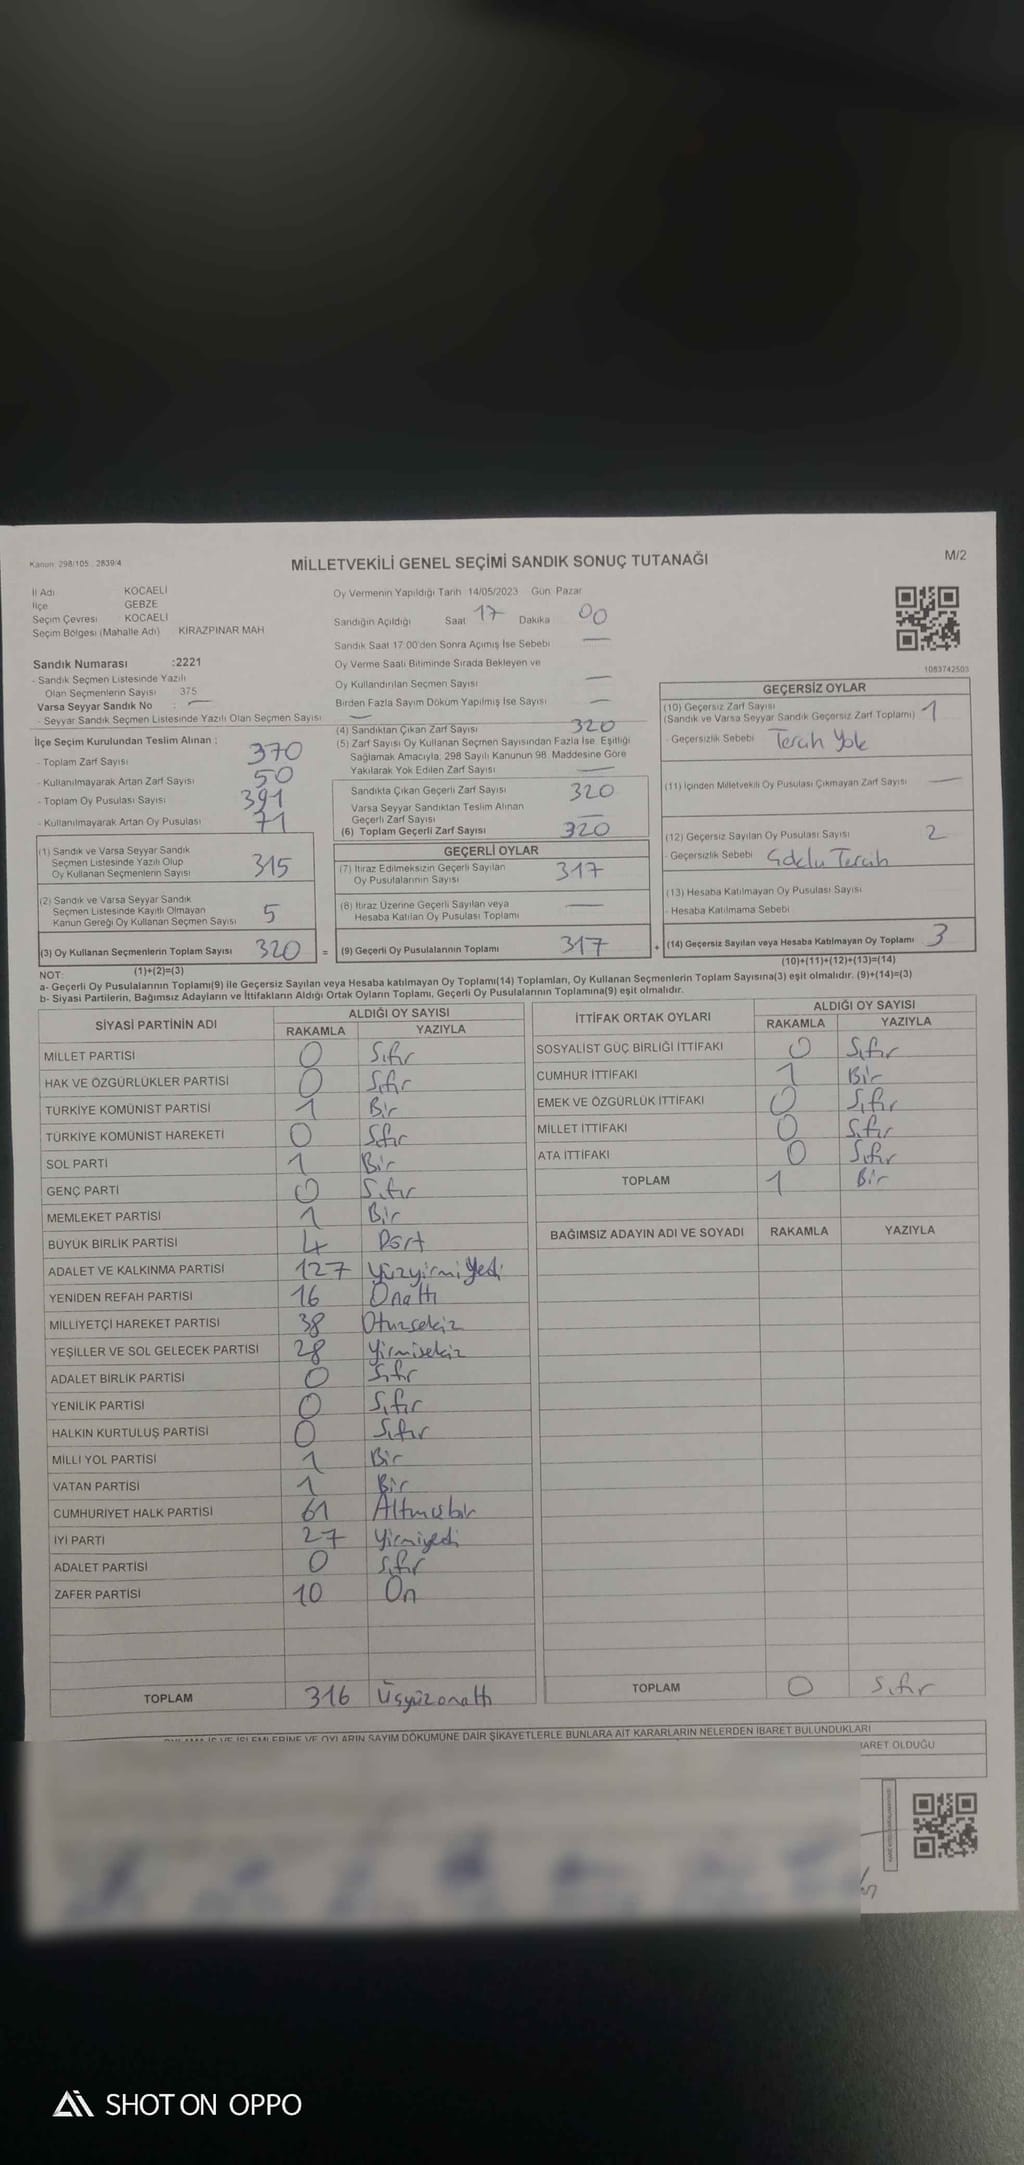 Kanun: 298/105 , 2839/4
MİLLETVEKİLİ GENEL SEÇİMİ SANDIK SONUÇ TUTANAĞI
M/2
İl Adı KOCAELİ
İlçe GEBZE
Seçim Çevresi KOCAELİ
Seçim Bölgesi (Mahalle Adı) KİRAZPINAR MAH
Sandık Numarası :2221
- Sandık Seçmen Listesinde Yazılı
Olan Seçmenlerin Sayısı : 375
Varsa Seyyar Sandık No : —
- Seyyar Sandık Seçmen Listesinde Yazılı Olan Seçmen Sayısı —
İlçe Seçim Kurulundan Teslim Alınan :
- Toplam Zarf Sayısı 370
- Kullanılmayarak Artan Zarf Sayısı 50
- Toplam Oy Pusulası Sayısı 391
- Kullanılmayarak Artan Oy Pusulası 71
(1) Sandık ve Varsa Seyyar Sandık
Seçmen Listesinde Yazılı Olup
Oy Kullanan Seçmenlerin Sayısı 315
(2) Sandık ve Varsa Seyyar Sandık
Seçmen Listesinde Kayıtlı Olmayan
Kanun Gereği Oy Kullanan Seçmen Sayısı 5
(3) Oy Kullanan Seçmenlerin Toplam Sayısı 320 =
(1)+(2)=(3)
Oy Vermenin Yapıldığı Tarih 14/05/2023 Gün: Pazar
Sandığın Açıldığı Saat 17 Dakika 00
Sandık Saat 17:00'den Sonra Açımış İse Sebebi —
Oy Verme Saati Bitiminde Sırada Bekleyen ve
Oy Kullandırılan Seçmen Sayısı —
Birden Fazla Sayım Döküm Yapılmış İse Sayısı —
(4) Sandıktan Çıkan Zarf Sayısı 320
(5) Zarf Sayısı Oy Kullanan Seçmen Sayısından Fazla İse, Eşitliği
Sağlamak Amacıyla, 298 Sayılı Kanunun 98. Maddesine Göre
Yakılarak Yok Edilen Zarf Sayısı —
Sandıkta Çıkan Geçerli Zarf Sayısı 320
Varsa Seyyar Sandıktan Teslim Alınan
Geçerli Zarf Sayısı —
(6) Toplam Geçerli Zarf Sayısı 320
GEÇERLİ OYLAR
(7) İtiraz Edilmeksizin Geçerli Sayılan
Oy Pusulalarının Sayısı 317
(8) İtiraz Üzerine Geçerli Sayılan veya
Hesaba Katılan Oy Pusulası Toplamı —
(9) Geçerli Oy Pusulalarının Toplamı 317 +
1083742503
GEÇERSİZ OYLAR
(10) Geçersiz Zarf Sayısı
(Sandık ve Varsa Seyyar Sandık Geçersiz Zarf Toplamı) 1
- Geçersizlik Sebebi Tercih Yok
(11) İçinden Milletvekili Oy Pusulası Çıkmayan Zarf Sayısı —
(12) Geçersiz Sayılan Oy Pusulası Sayısı 2
- Geçersizlik Sebebi Çoklu Tercih
(13) Hesaba Katılmayan Oy Pusulası Sayısı
- Hesaba Katılmama Sebebi
(14) Geçersiz Sayılan veya Hesaba Katılmayan Oy Toplamı 3
(10)+(11)+(12)+(13)=(14)
NOT:
a- Geçerli Oy Pusulalarının Toplamı(9) ile Geçersiz Sayılan veya Hesaba katılmayan Oy Toplamı(14) Toplamları, Oy Kullanan Seçmenlerin Toplam Sayısına(3) eşit olmalıdır. (9)+(14)=(3)
b- Siyasi Partilerin, Bağımsız Adayların ve İttifakların Aldığı Ortak Oyların Toplamı, Geçerli Oy Pusulalarının Toplamına(9) eşit olmalıdır.
SİYASİ PARTİNİN ADI ALDIĞI OY SAYISI
RAKAMLA YAZIYLA
MİLLET PARTİSİ 0 Sıfır
HAK VE ÖZGÜRLÜKLER PARTİSİ 0 Sıfır
TÜRKİYE KOMÜNİST PARTİSİ 1 Bir
TÜRKİYE KOMÜNİST HAREKETİ 0 Sıfır
SOL PARTİ 1 Bir
GENÇ PARTİ 0 Sıfır
MEMLEKET PARTİSİ 1 Bir
BÜYÜK BİRLİK PARTİSİ 4 Dört
ADALET VE KALKINMA PARTİSİ 127 Yüzyirmi Yedi
YENİDEN REFAH PARTİSİ 16 Onaltı
MİLLİYETÇİ HAREKET PARTİSİ 38 Otuzsekiz
YEŞİLLER VE SOL GELECEK PARTİSİ 28 Yirmisekiz
ADALET BİRLİK PARTİSİ 0 Sıfır
YENİLİK PARTİSİ 0 Sıfır
HALKIN KURTULUŞ PARTİSİ 0 Sıfır
MİLLİ YOL PARTİSİ 1 Bir
VATAN PARTİSİ 1 Bir
CUMHURİYET HALK PARTİSİ 61 Altmışbir
İYİ PARTİ 27 Yirmiyedi
ADALET PARTİSİ 0 Sıfır
ZAFER PARTİSİ 10 On
TOPLAM 316 Üçyüzonaltı
İTTİFAK ORTAK OYLARI ALDIĞI OY SAYISI
RAKAMLA YAZIYLA
SOSYALİST GÜÇ BİRLİĞİ İTTİFAKI 0 Sıfır
CUMHUR İTTİFAKI 1 Bir
EMEK VE ÖZGÜRLÜK İTTİFAKI 0 Sıfır
MİLLET İTTİFAKI 0 Sıfır
ATA İTTİFAKI 0 Sıfır
TOPLAM 1 Bir
BAĞIMSIZ ADAYIN ADI VE SOYADI RAKAMLA YAZIYLA
TOPLAM 0 Sıfır
VE OYLARIN SAYIM DÖKÜMÜNE DAİR ŞİKAYETLERLE BUNLARA AİT KARARLARIN NELERDEN İBARET BULUNDUKLARI
OLDUĞU
SHOT ON OPPO